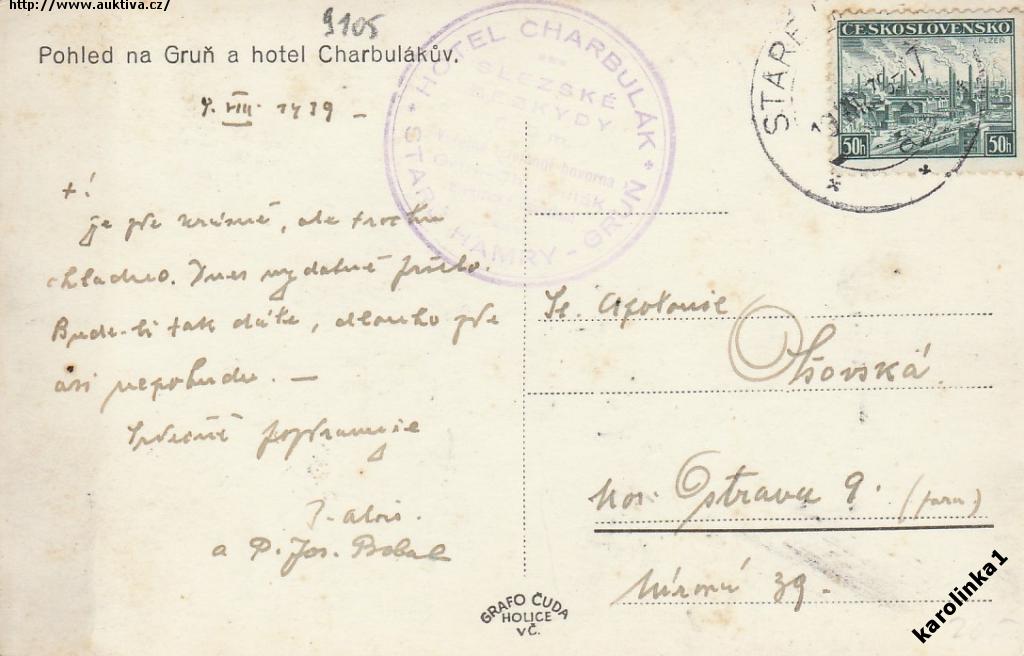 http://www.auktiva.cz/
9105
Pohled na Gruň a hotel Charbulákův.
HOTEL CHARBULÁK
SLEZSKÉ
BESKYDY
hovorna
STARÉ HAMRY - GRUŇ
STARÉ
ČESKOSLOVENSKO
PLZEŇ
50h 50h
VIII. 1939
+!
je zde krásně, ale trochu
chladno. Dnes vydatně pršelo.
Bude-li tak dále, dlouho zde
asi nepobudu. —
Srdečně pozdravuje
P. Alois.
a P. Jos.
Sl. Apolonie
Olšovská
Mor. Ostrava 9. (fara)
Mírová 39.
GRAFO ČUDA
HOLICE
VČ.
karolinka1